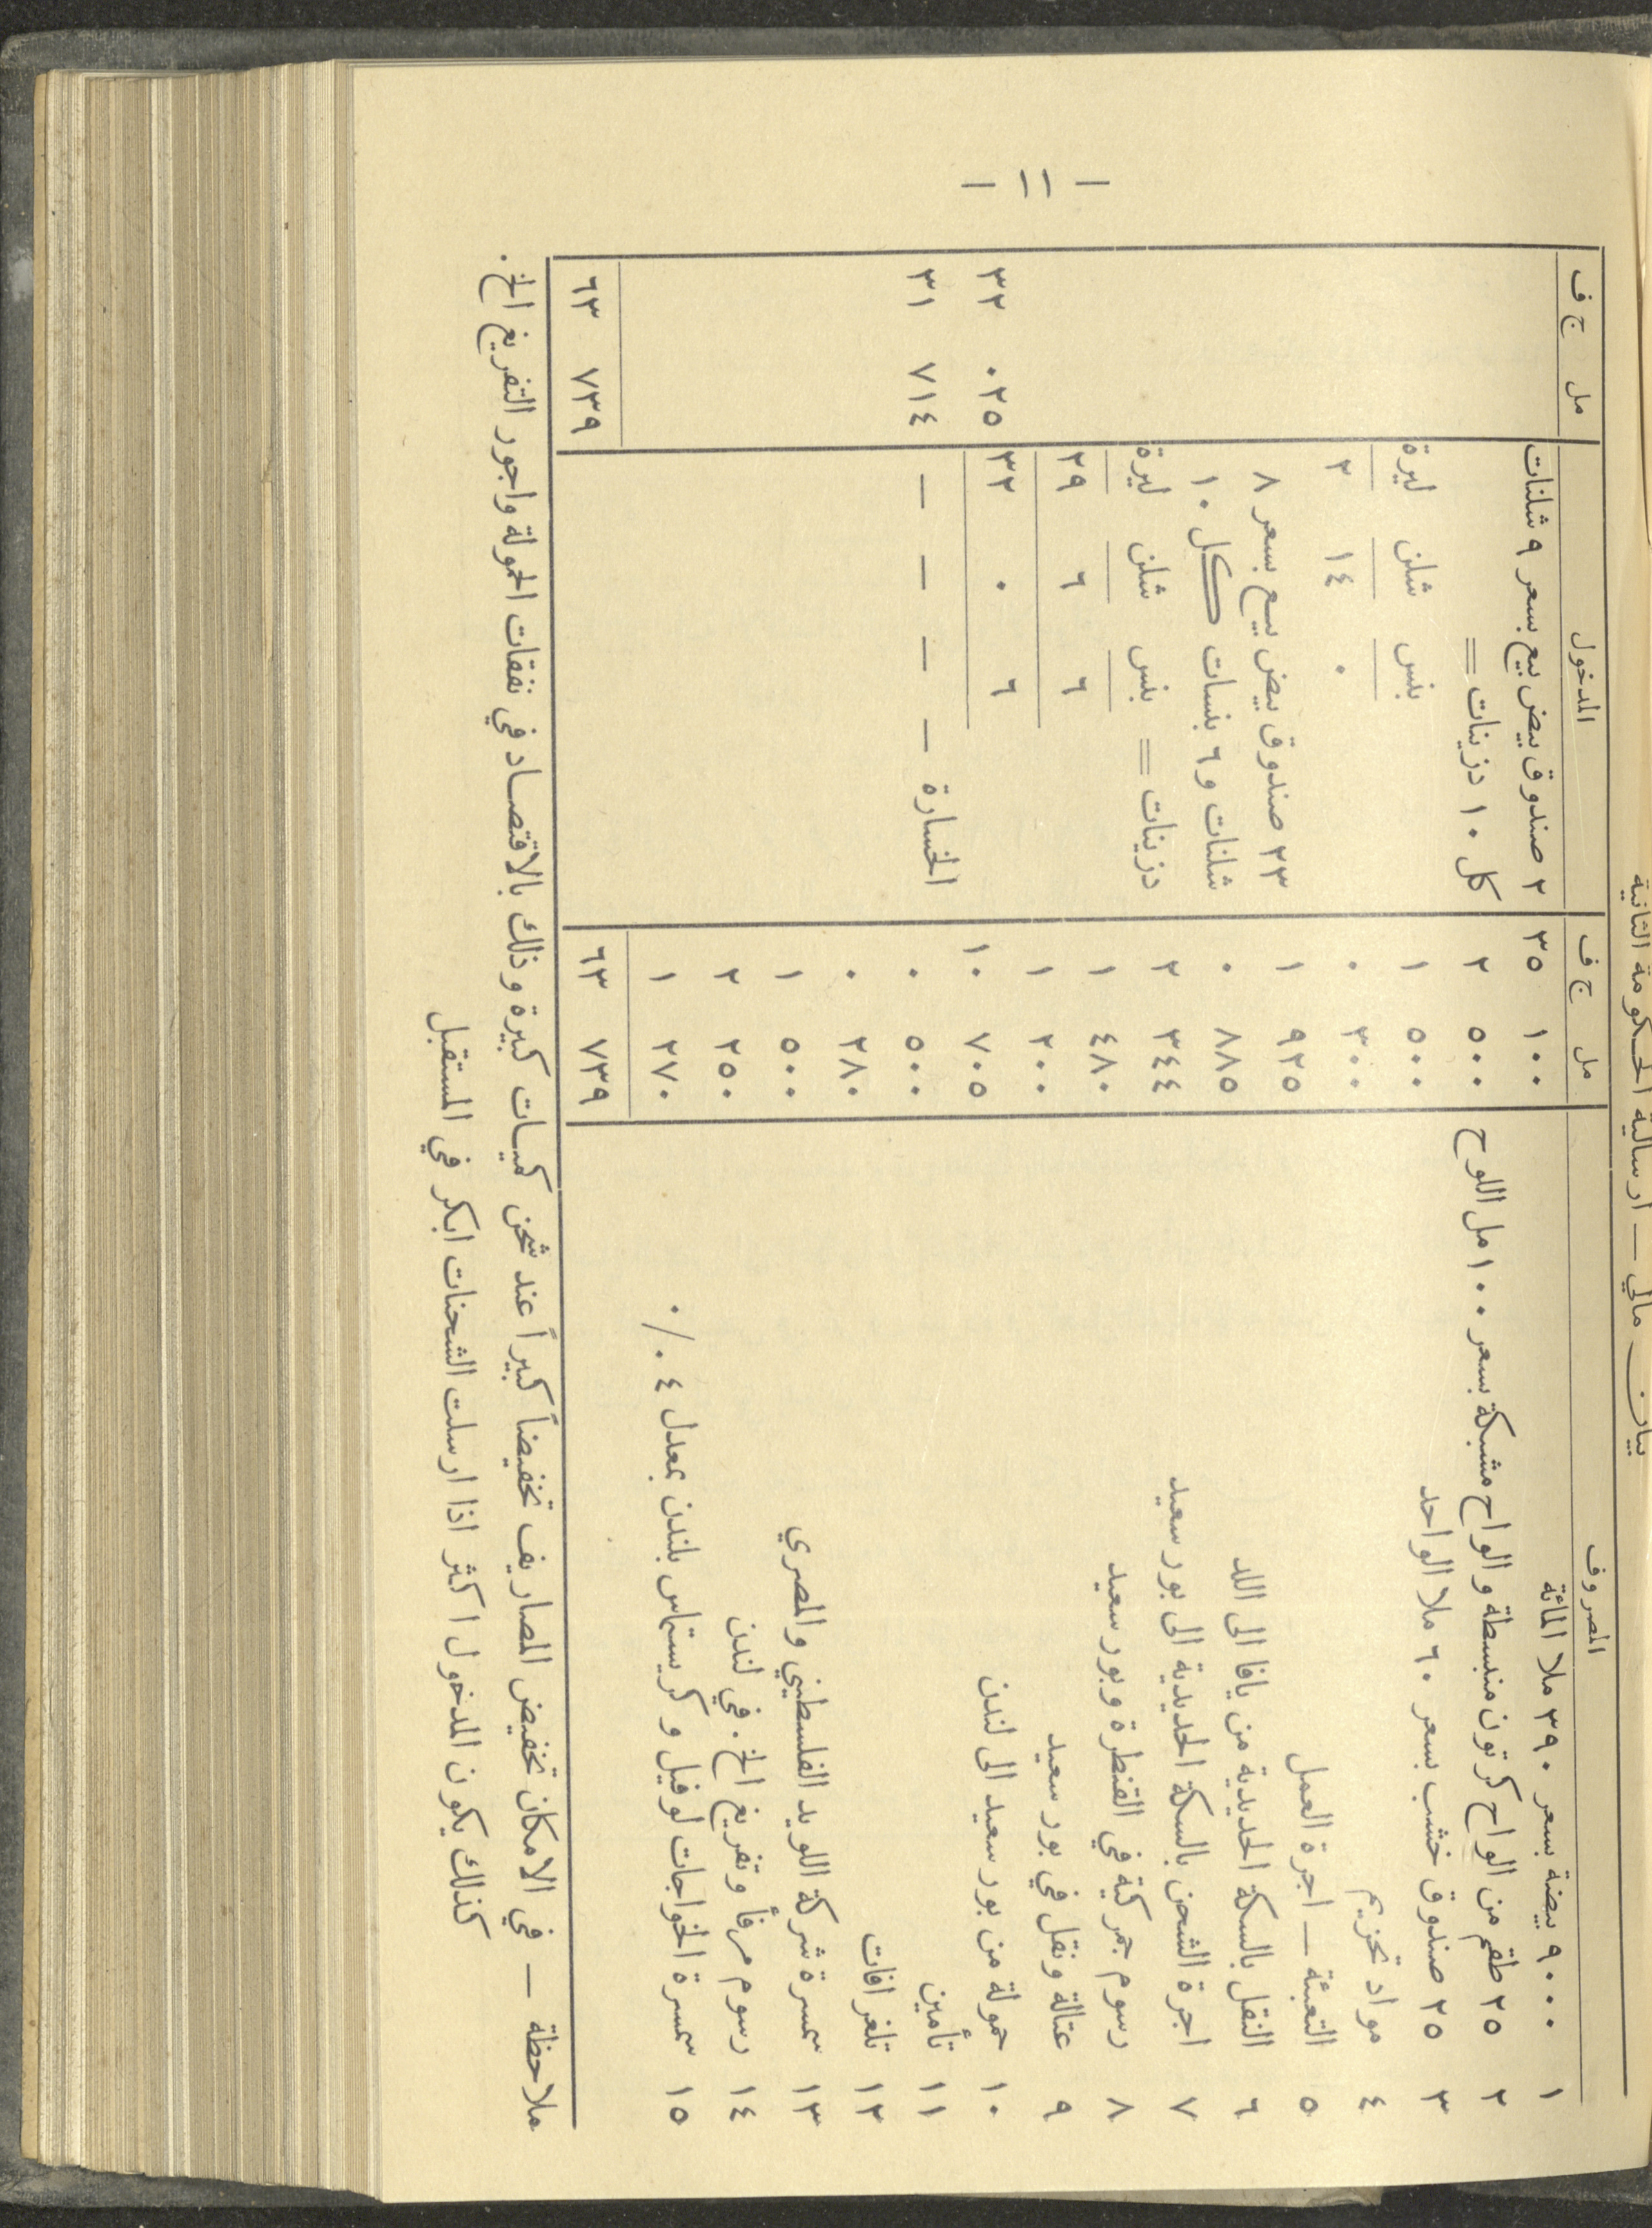 — ١١ —
بيان مالي — ارسالية الحكومة الثانية
المصروف مل ج ف المدخول مل ج ف
١ ٩٠٠٠ بيضة بسعر ٣٩٠ ملا المائة ١٠٠ ٣٥ ٢ صندوق بيض بيع بسعر ٩ شلنات
٢ ٢٥ طقم من الواح كرتون منبسطة والواح مشبكة بسعر ١٠٠ مل اللوح ٥٠٠ ٢ كل ١٠ دزينات =
٣ ٢٥ صندوق خشب بسعر ٦٠ ملا الواحد ٥٠٠ ١ بنس شلن ليرة
٤ مواد تحزيم ٣٠٠ ٠ ٠ ١٤ ٢
٥ التعبئة — اجرة العمل ٩٢٥ ١ ٢٣ صندوق بيض بيع بسعر ٨
٦ النقل بالسكة الحديدية من يافا الى اللد ٨٨٥ ٠ شلنات و٦ بنسات كل ١٠
٧ اجرة الشحن بالسكة الحديدية الى بور سعيد ٣٤٤ ٢ دزينات = بنس شلن ليرة
٨ رسوم جمركية في القنطرة وبور سعيد ٤٨٠ ١ ٦ ٦ ٢٩
٩ عتالة ونقل في بور سعيد ٢٠٠ ١
١٠ حمولة من بور سعيد الى لندن ٧٠٥ ١٠ ٦ ٠ ٣٢ ٠٢٥ ٣٢
١١ تأمين ٥٠٠ ٠ الخسارة — — — — ٧١٤ ٣١
١٢ تلغرافات ٢٨٠ ٠
١٣ سمسرة شركة اللويد الفلسطيني والمصري ٥٠٠ ١
١٤ رسوم مرفأ وتفريغ الخ. في لندن ٢٥٠ ٢
١٥ سمسرة الخواجات لوفيل وكريستماس بلندن بمعدل ٤ ٠/٠ ٢٧٠ ١
٧٣٩ ٦٣ ٧٣٩ ٦٣
ملاحظة — في الامكان تخفيض المصاريف تخفيضاً كبيراً عند شحن كميات كبيرة وذلك بالاقتصاد في نفقات الحمولة واجور التفريغ الخ.
كذلك يكون المدخول اكثر اذا ارسلت الشحنات ابكر في المستقبل